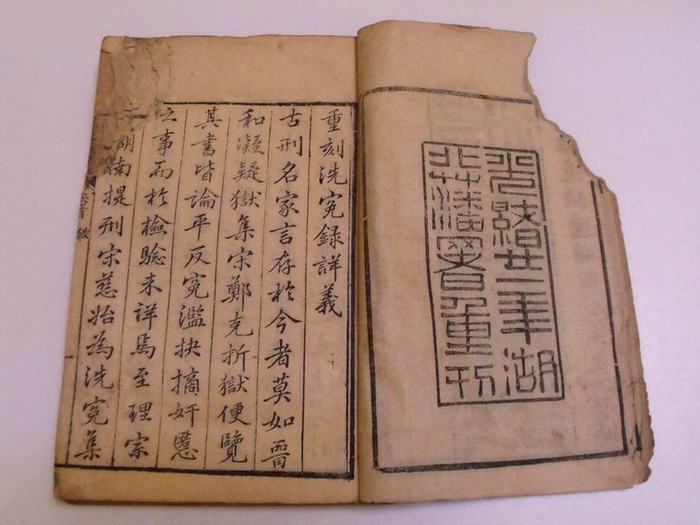 光緒三年湖
北藩署重刊
重刻洗冤錄詳義
古刑名家言存於今者莫如晉
和凝疑獄集宋鄭克折獄便覽
其書皆論平反冤濫抉摘奸慝
之事而於檢驗未詳焉至理宗
湖南提刑宋慈始為洗冤集
卷首 敘